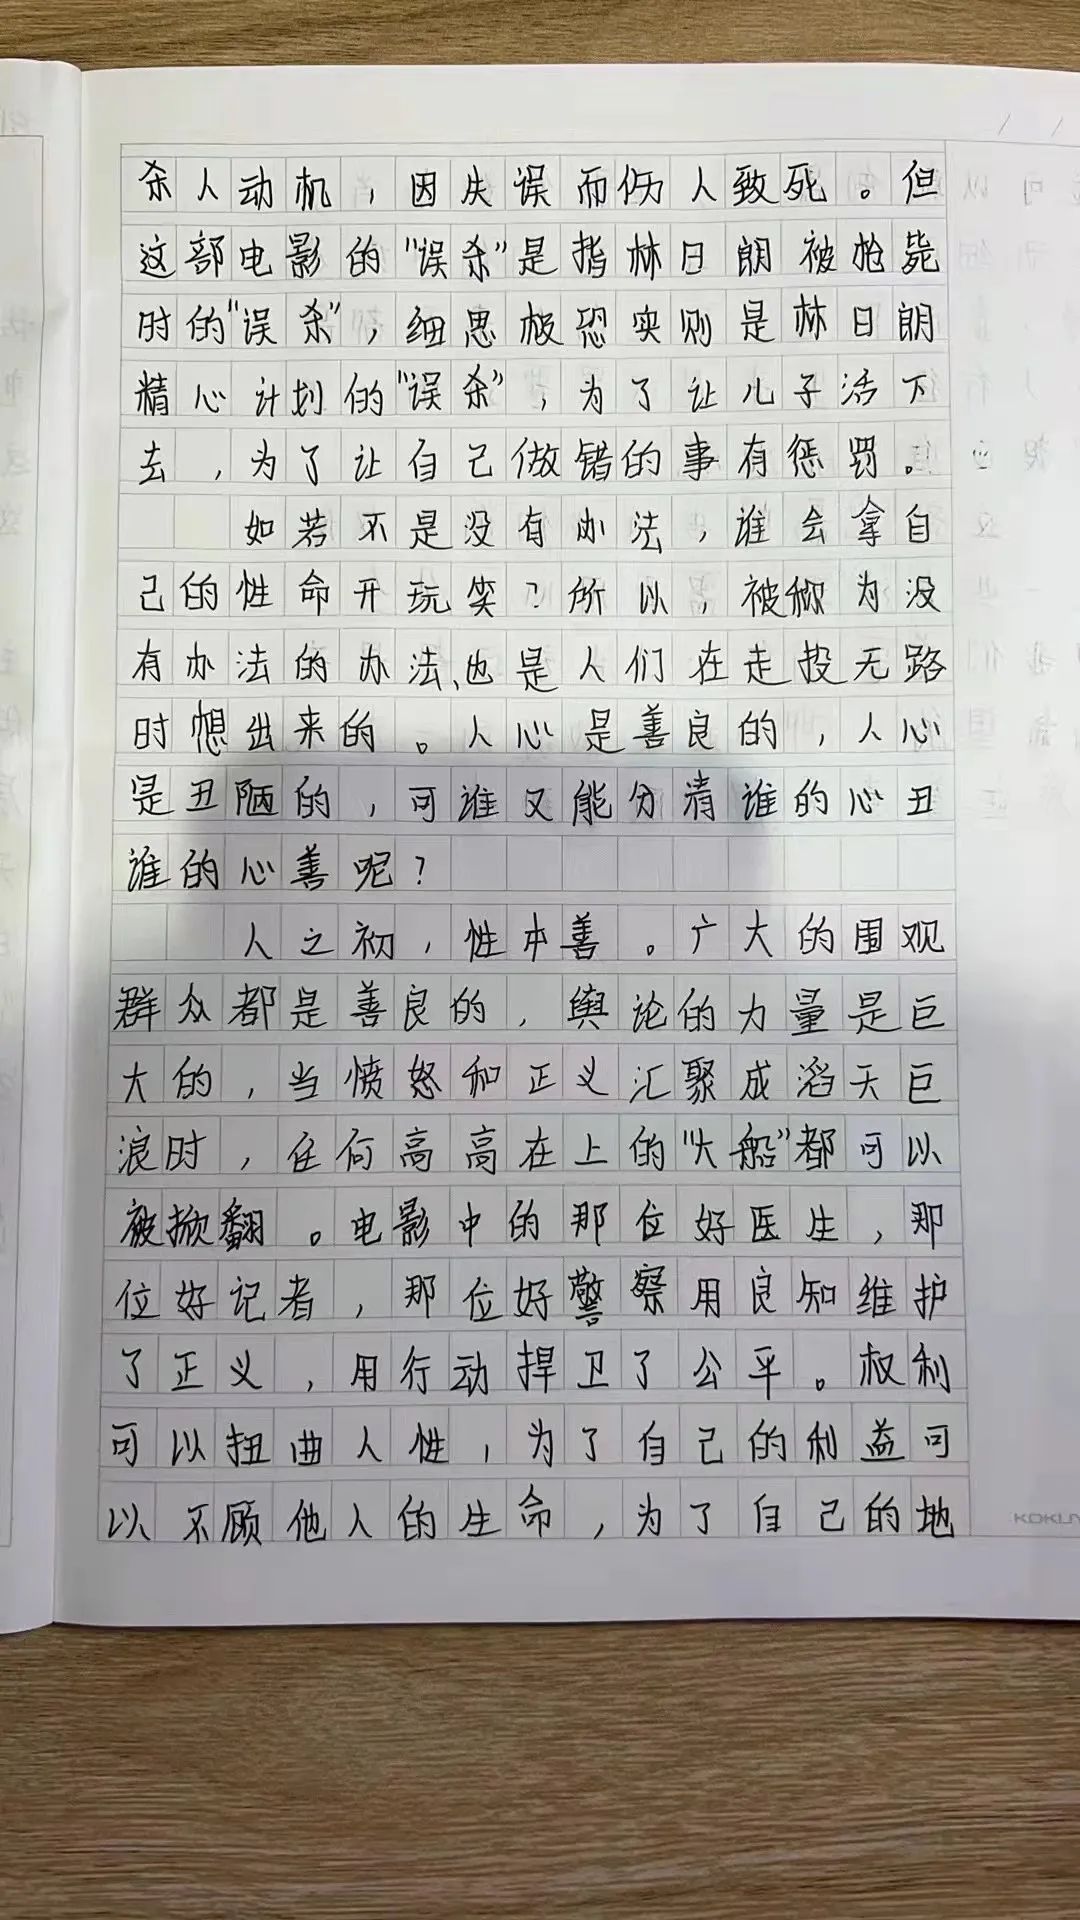 杀人动机，因失误而伤人致死。但
这部电影的“误杀”是指林日朗被枪毙
时的“误杀”，细思极恐实则是林日朗
精心计划的“误杀”，为了让儿子活下
去，为了让自己做错的事有惩罚。
如若不是没有办法，谁会拿自
己的性命开玩笑？所以，被称为没
有办法的办法、也是人们在走投无路
时想出来的。人心是善良的，人心
是丑陋的，可谁又能分清谁的心丑
谁的心善呢？
人之初，性本善。广大的围观
群众都是善良的，舆论的力量是巨
大的，当愤怒和正义汇聚成滔天巨
浪时，任何高高在上的“大船”都可以
被掀翻。电影中的那位好医生，那
位好记者，那位好警察用良知维护
了正义，用行动捍卫了公平。权利
可以扭曲人性，为了自己的利益可
以不顾他人的生命，为了自己的地